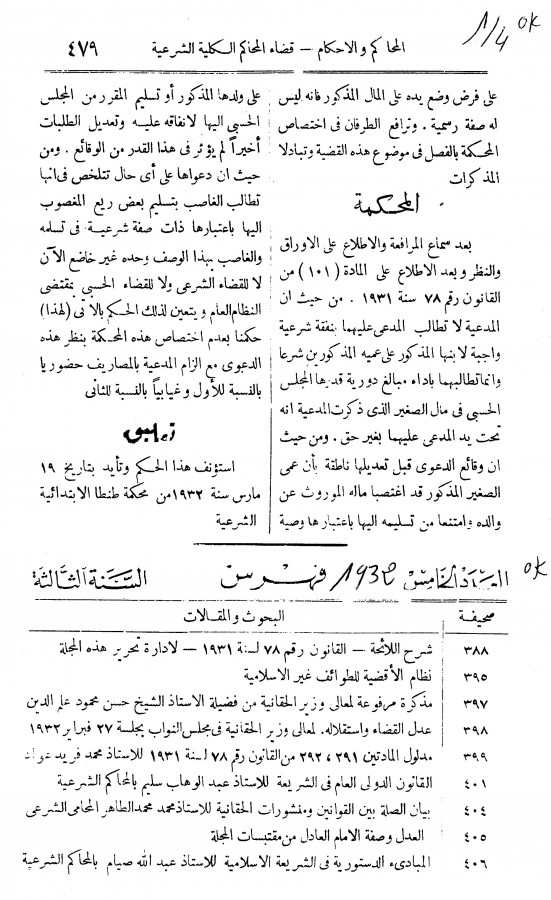 ١/٤ ok
المحاكم والاحكام – قضاء المحاكم الكلية الشرعية ٤٧٩
على فرض وضع يده على المال المذكور فانه ليس
له صفة رسمية . وترافع الطرفان فى اختصاص
المحكمة بالفصل فى موضوع هذه القضية وتبادلا
المذكرات
المحكمة
بعد سماع المرافعة والاطلاع على الاوراق
والنظر وبعد الاطلاع على المادة (١٠١) من
القانون رقم ٧٨ سنة ١٩٣١ . من حيث ان
المدعية لا تطالب المدعى عليهما بنفقة شرعية
واجبة لابنها المذكور على عميه المذكورين شرعا
وانما تطالبهما باداء مبالغ دورية قدرها المجلس
الحسبى فى مال الصغير الذى ذكرت المدعية انه
تحت يد المدعى عليهما بغير حق . ومن حيث
ان وقائع الدعوى قبل تعديلها ناطقة بأن عمى
الصغير المذكور قد اغتصبا ماله الموروث عن
والده وامتنعا من تسليمه اليها باعتبارها وصية
على ولدها المذكور أو تسليم المقرر من المجلس
الحسبى اليها لانفاقه عليه وتعديل الطلبات
أخيراً لم يؤثر فى هذا القدر من الوقائع . ومن
حيث ان دعواها على أى حال تتلخص فى انها
تطالب الغاصب بتسليم بعض ريع المغصوب
اليها باعتبارها ذات صفة شرعية فى تسلمه
والغاصب بهذا الوصف وحده غير خاضع الآن
لا للقضاء الشرعى ولا للقضاء الحسبى بمقتضى
النظام العام ويتعين لذلك الحكم بالآتى (لهذا)
حكمنا بعدم اختصاص هذه المحكمة بنظر هذه
الدعوى مع الزام المدعية بالمصاريف حضوريا
بالنسبة للأول وغيابياً بالنسبة للثانى
تعليق
استؤنف هذا الحكم وتأيد بتاريخ ١٩
مارس سنة ١٩٣٢ من محكمة طنطا الابتدائية
الشرعية
العدد الخامس ١٩٣٢ فهرس السنة الثالثة ok
صحيفة البحوث والمقالات
٣٨٨ شرح اللائحة – القانون رقم ٧٨ لسنة ١٩٣١ – لادارة تحرير هذه المجلة
٣٩٥ نظام الأقضية للطوائف غير الاسلامية
٣٩٧ مذكرة مرفوعة لمعالى وزير الحقانية من فضيلة الاستاذ الشيخ حسن محمود علم الدين
٣٩٨ عدل القضاء واستقلاله. لمعالى وزير الحقانية فى مجلس النواب بجلسة ٢٧ فبراير ١٩٣٢
٣٩٩ مدلول المادتين ٢٩١ ، ٢٩٢ من القانون رقم ٧٨ لسنة ١٩٣١ للاستاذ محمد فريد
٤٠١ القانون الدولى العام فى الشريعة للاستاذ عبد الوهاب سليم بالمحاكم الشرعية
٤٠٤ بيان الصلة بين القوانين ومنشورات الحقانية للاستاذ محمد محمد الطاهر المحامى الشرعى
٤٠٥ العدل وصفة الامام العادل من مقتبسات المجلة
٤٠٦ المبادىء الدستورية فى الشريعة الاسلامية للاستاذ عبد الله صيام بالمحاكم الشرعية